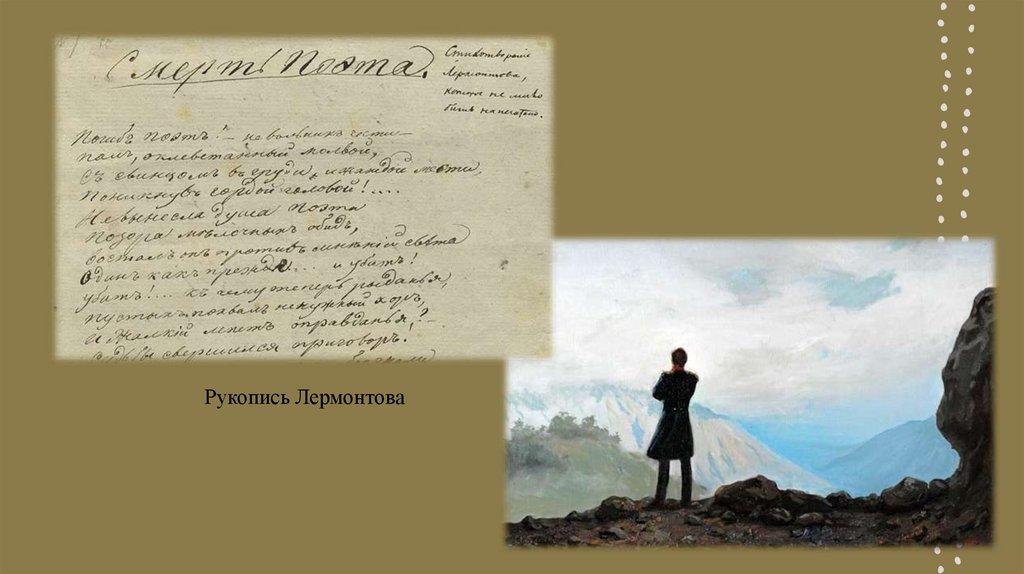 Смерть Поэта.
Стихотворение
Лермонтова,
которое не было
напечатано.
Погибъ поэтъ! – невольникъ чести –
палъ, оклеветанный молвой,
Съ свинцомъ въ груди, и жаждой мести,
Поникнувъ гордой головой!....
Невынесла душа поэта
Позора мѣлочныхъ обидъ,
возсталъ онъ противъ мнѣній свѣта
Одинъ какъ прежде.... и убитъ!
убитъ!.... къ чему теперь рыданья,
пустыхъ похвалъ ненужный хоръ,
И жалкій лепетъ оправданья,
Судьбы свершился приговоръ.
Рукопись Лермонтова